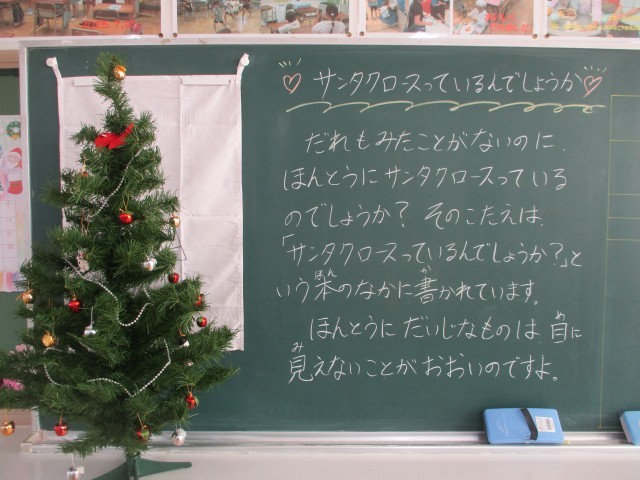 サンタクロースっているんでしょうか
だれもみたことがないのに、
ほんとうにサンタクロースっている
のでしょうか？ そのこたえは、
「サンタクロースっているんでしょうか？」と
いう本のなかに書かれています。
ほんとうにだいじなものは、目に
見えないことがおおいのですよ。